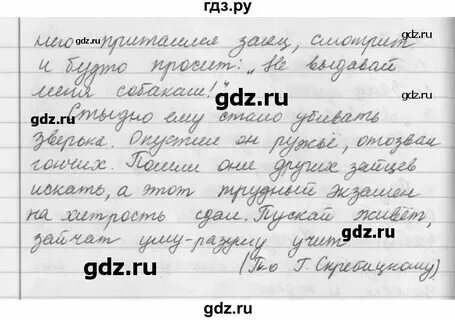 гдз.ру
него притаился заяц, смотрит
и будто просит: „Не выдавай
меня собакам!"
gdz.ru
gdz.ru
Стыдно ему стало убивать
зверька. Опустил он ружьё, отозвал
гончих. Пошли они других зайцев
gdz.ru
искать, а этот трудный экзамен
на хитрость сдал. Пускай живёт,
зайчат уму-разуму учит
gdz.ru
(По Г. Скребицкому)
gdz.ru
gdz.ru